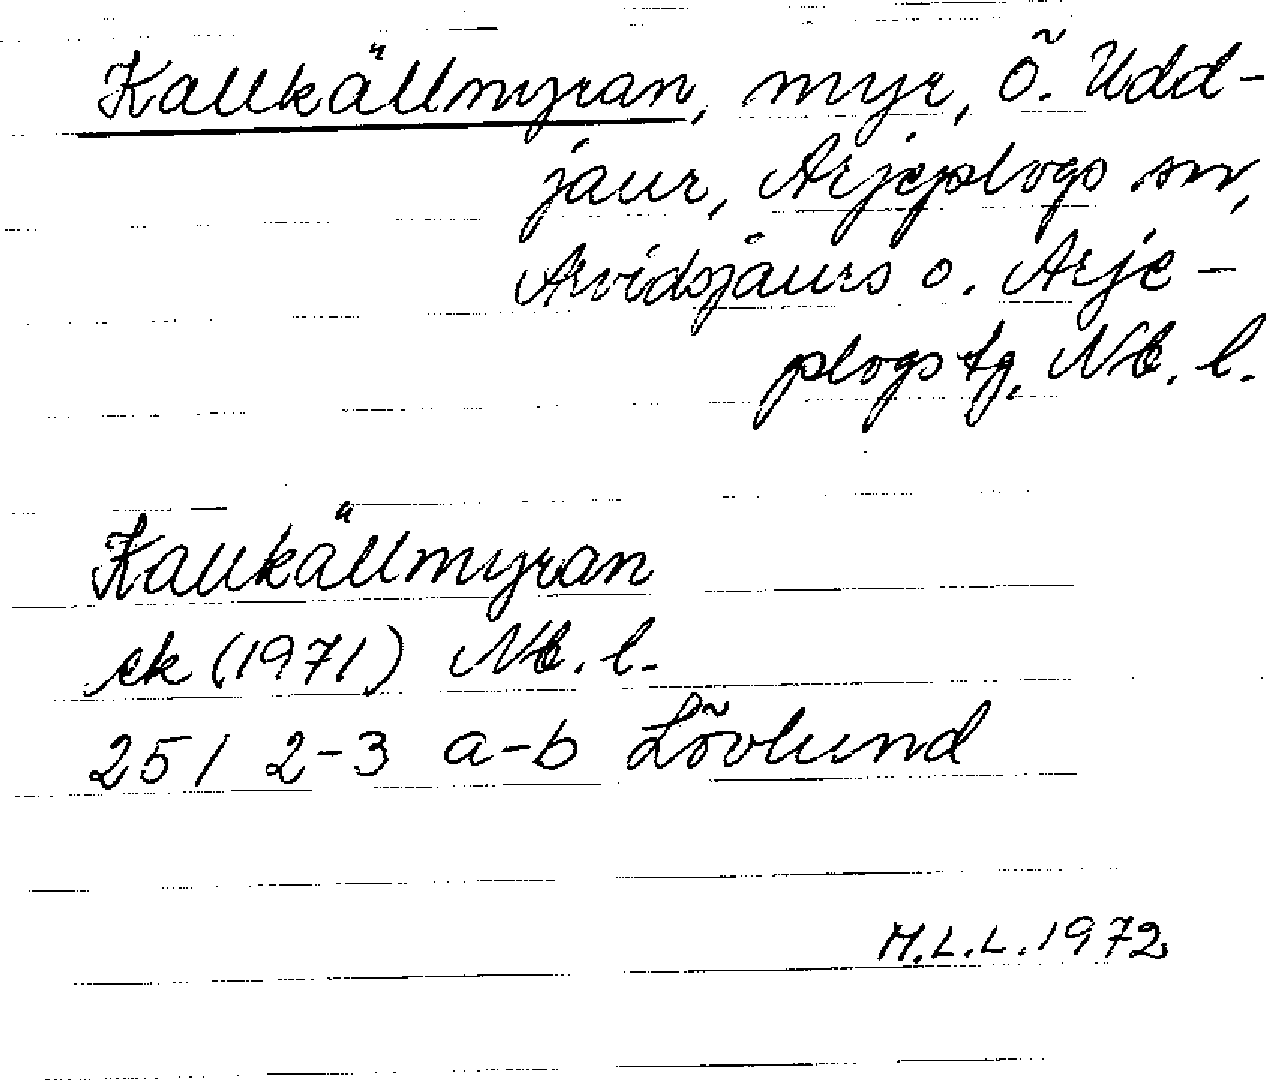 Kallkällmyran, myr, Ö. Udd-
jaur, Arjeplogs sn,
Arvidsjaurs o. Arje-
plogs tg, Nb. l.
Kallkällmyran
ek (1971) Nb. l.
25 I 2-3 a-b Lövlund
M.L.L. 1972